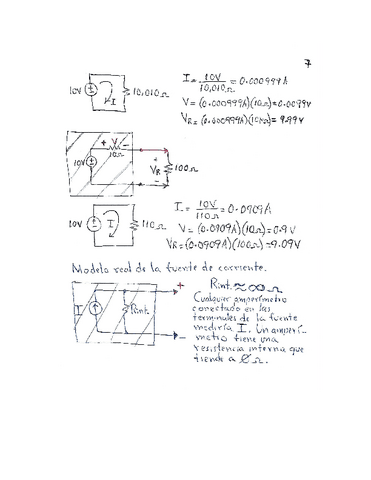 7
I = 10V / 10,010Ω = 0.000999A
10V I 10,010Ω
V = (0.000999A)(10Ω) = 0.0099V
VR = (0.000999A)(10KΩ) = 9.99V
+ V -
10Ω
10V + VR - 100Ω
I = 10V / 110Ω = 0.0909A
10V I 110Ω
V = (0.0909A)(10Ω) = 0.9V
VR = (0.0909A)(100Ω) = 9.09V
Modelo real de la fuente de corriente.
+
Rint. ≈ ∞ Ω
Cualquier amperímetro
conectado en las
I Rint.
terminales de la fuente
mediría I. Un amperí-
metro tiene una
-
resistencia interna que
tiende a 0 Ω.